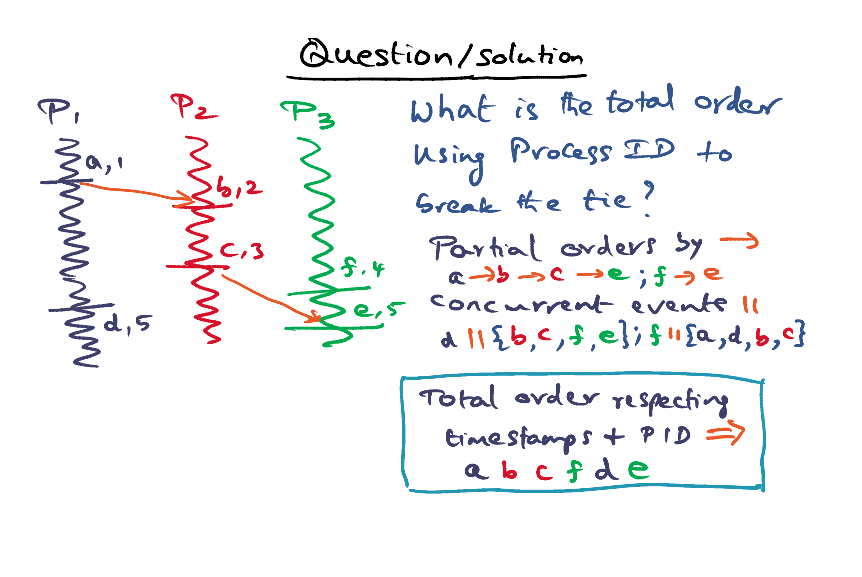 Question/solution
P1
P2
P3
a,1
b,2
c,3
f.4
e,5
d,5
What is the total order
using Process ID to
break the tie?
Partial orders by →
a → b → c → e ; f → e
concurrent events ||
d || {b, c, f, e}; f || {a, d, b, c}
Total order respecting
timestamps + PID ⇒
a b c f d e